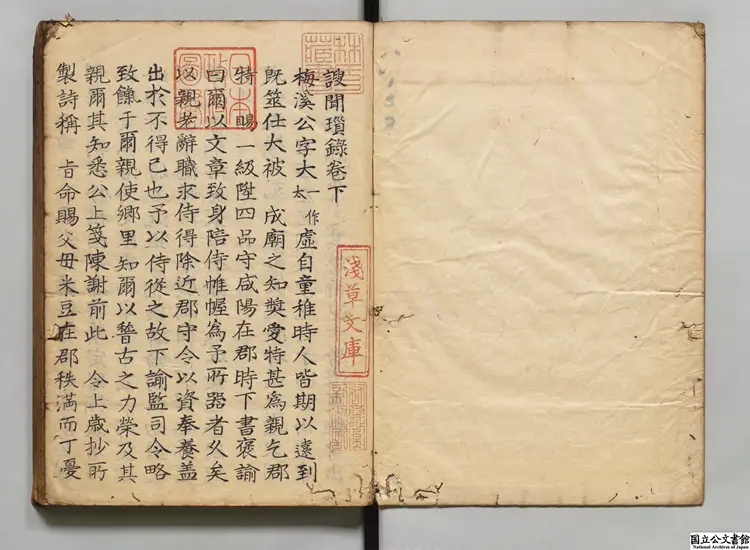 謏聞瑣錄卷下
梅溪公字大一作太虛自童稚時人皆期以遠到
旣筮仕大被 成廟之知奬愛特甚爲親乞郡
特 賜一級陞四品守咸陽在郡時下書褒諭
曰爾以文章致身陪侍帷幄爲予所器者久矣
以親老辭職求侍得除近郡守令以資奉養盖
出於不得已也予以侍從之故下諭監司令略
致餼于爾親使鄉里知爾以嵆古之力榮及其
親爾其知悉公上箋陳謝前此 令上歲抄所
製詩稱 旨命賜父母米豆在郡秩滿而丁憂
林氏藏書
日本政府圖書
淺草文庫
国立公文書館
National Archives of Japan